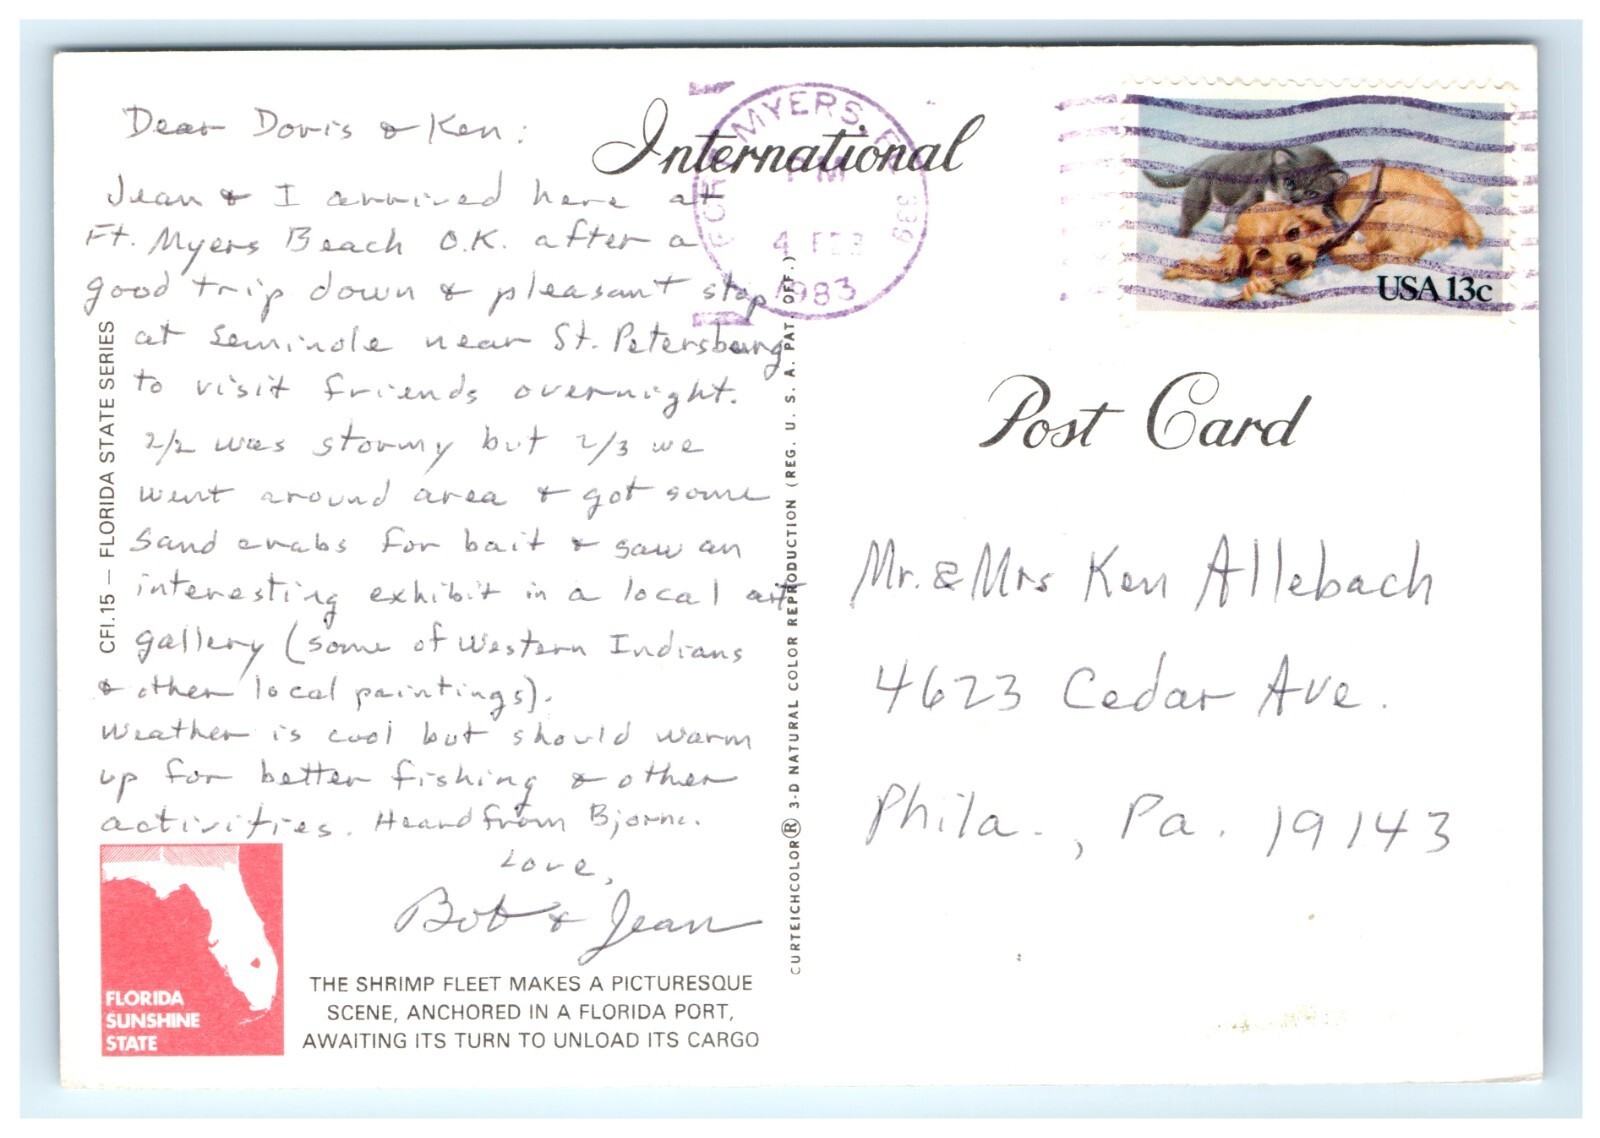 Dear Doris & Ken:
Jean & I arrived here at
Ft. Myers Beach O.K. after a
good trip down & pleasant stop
at Seminole near St. Petersburg
to visit friends overnight.
2/2 was stormy but 2/3 we
went around area & got some
sand crabs for bait & saw an
interesting exhibit in a local art
gallery (some of Western Indians
& other local paintings).
Weather is cool but should warm
up for better fishing & other
activities. Heard from Bjorne.
Love,
Bob & Jean
CFI.15 – FLORIDA STATE SERIES
FLORIDA
SUNSHINE
STATE
THE SHRIMP FLEET MAKES A PICTURESQUE
SCENE, ANCHORED IN A FLORIDA PORT,
AWAITING ITS TURN TO UNLOAD ITS CARGO
CURTEICHCOLOR® 3-D NATURAL COLOR REPRODUCTION (REG. U. S. A. PAT. OFF.)
International
FORT MYERS, FL 339
PM
4 FEB
1983
USA 13c
Post Card
Mr. & Mrs Ken Allebach
4623 Cedar Ave.
Phila., Pa. 19143